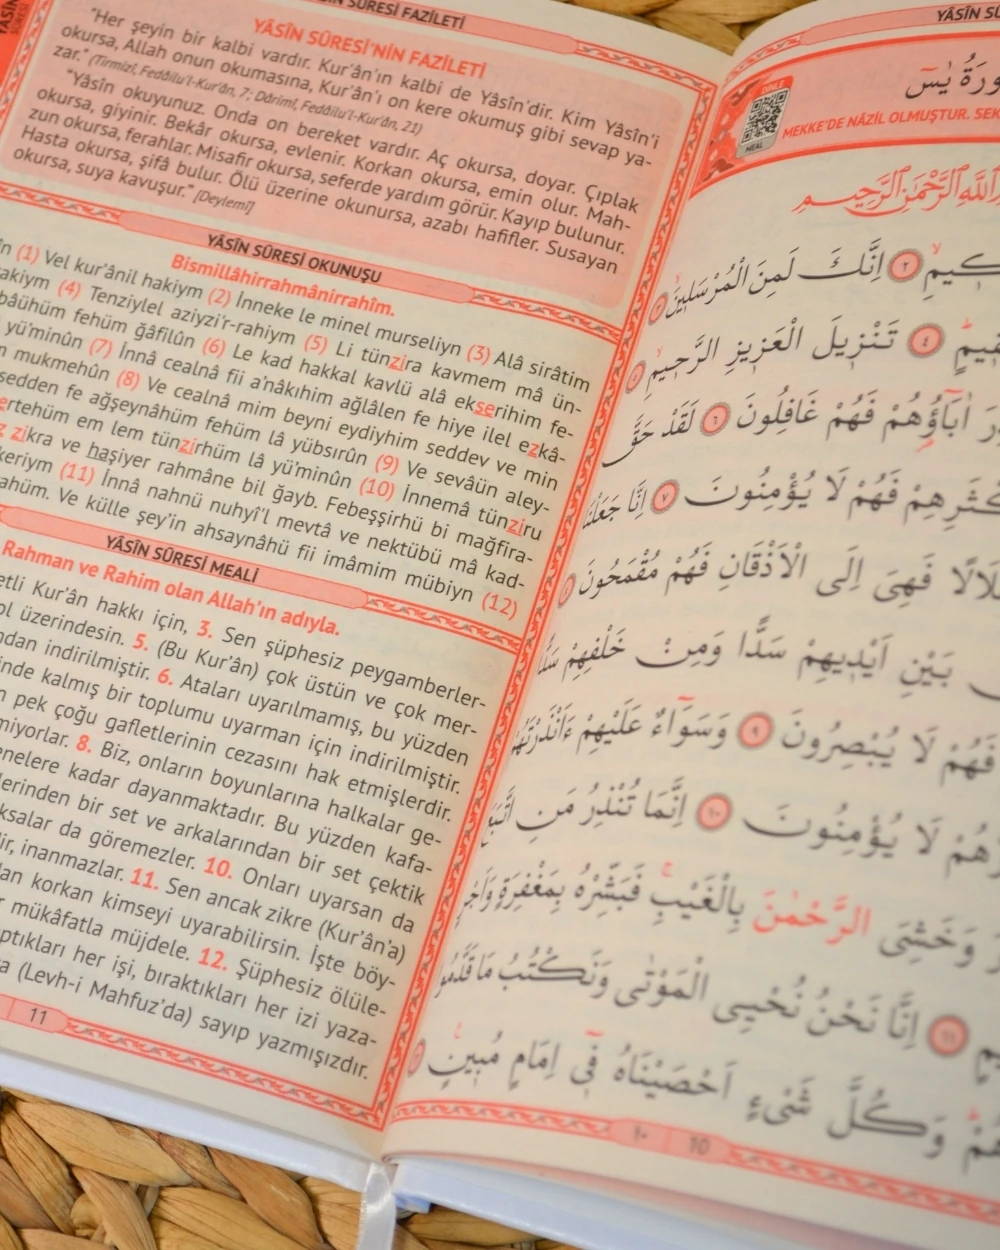 YÂSÎN SÛRESİ FAZİLETİ
YÂSÎN SÛRESİ'NİN FAZİLETİ
"Her şeyin bir kalbi vardır. Kur'ân'ın kalbi de Yâsîn'dir. Kim Yâsîn'i
okursa, Allah onun okumasına, Kur'ân'ı on kere okumuş gibi sevap ya-
zar." (Tirmizî, Fedâilu'l-Kur'ân, 7; Dârimî, Fedâilu'l-Kur'ân, 21)
"Yâsîn okuyunuz. Onda on bereket vardır. Aç okursa, doyar. Çıplak
okursa, giyinir. Bekâr okursa, evlenir. Korkan okursa, emin olur. Mah-
zun okursa, ferahlar. Misafir okursa, seferde yardım görür. Kayıp bulunur.
Hasta okursa, şifâ bulur. Ölü üzerine okunursa, azabı hafifler. Susayan
okursa, suya kavuşur." [Deylemî]
YÂSÎN SÛRESİ OKUNUŞU
Bismillâhirrahmânirrahîm.
(1) Vel kur'ânil hakiym (2) İnneke le minel murseliyn (3) Alâ sirâtim
(4) Tenziylel aziyzi'r-rahiym (5) Li tünzira kavmem mâ ün-
fehüm ğâfilûn (6) Le kad hakkal kavlü alâ ekserihim fe-
yü'minûn (7) İnnâ cealnâ fii a'nâkıhim ağlâlen fe hiye ilel ezkâ-
mukmehûn (8) Ve cealnâ mim beyni eydiyhim seddev ve min
sedden fe ağşeynâhüm fehüm lâ yübsırûn (9) Ve sevâün aley-
em lem tünzirhüm lâ yü'minûn (10) İnnemâ tünziru
zikra ve haşiyer rahmâne bil ğayb. Febeşşirhü bi mağfira-
(11) İnnâ nahnü nuhyi'l mevtâ ve nektübü mâ kad-
Ve külle şey'in ahsaynâhü fii imâmim mübiyn (12)
YÂSÎN SÛRESİ MEALİ
Rahman ve Rahim olan Allah'ın adıyla.
Kur'ân hakkı için, 3. Sen şüphesiz peygamberler-
üzerindesin. 5. (Bu Kur'ân) çok üstün ve çok mer-
indirilmiştir. 6. Ataları uyarılmamış, bu yüzden
kalmış bir toplumu uyarman için indirilmiştir.
pek çoğu gafletlerinin cezasını hak etmişlerdir.
8. Biz, onların boyunlarına halkalar ge-
kadar dayanmaktadır. Bu yüzden kafa-
bir set ve arkalarından bir set çektik
da göremezler. 10. Onları uyarsan da
inanmazlar. 11. Sen ancak zikre (Kur'ân'a)
korkan kimseyi uyarabilirsin. İşte böy-
mükâfatla müjdele. 12. Şüphesiz ölüle-
her işi, bıraktıkları her izi yaza-
(Levh-i Mahfuz'da) sayıp yazmışızdır.
11
YÂSÎN
DİNLE
MEAL
MEKKE'DE NÂZİL OLMUŞTUR.
اللّٰهِ الرَّحْمٰنِ الرَّحِيمِ
٢ اِنَّكَ لَمِنَ الْمُرْسَلِينَ ٣
٤ تَنْزِيلَ الْعَزِيزِ الرَّحِيمِ ٥
اٰبَاؤُهُمْ فَهُمْ غَافِلُونَ ٦ لَقَدْ حَقَّ
فَهُمْ لَا يُؤْمِنُونَ ٧ اِنَّا جَعَلْنَا
فَهِيَ اِلَى الْاَذْقَانِ فَهُمْ مُقْمَحُونَ ٨
بَيْنِ اَيْدِيهِمْ سَدًّا وَمِنْ خَلْفِهِمْ سَدًّا
فَهُمْ لَا يُبْصِرُونَ ٩ وَسَوَٓاءٌ عَلَيْهِمْ ءَاَنْذَرْتَهُمْ
لَا يُؤْمِنُونَ ١٠ اِنَّمَا تُنْذِرُ مَنِ اتَّبَعَ
وَخَشِيَ الرَّحْمٰنَ بِالْغَيْبِ فَبَشِّرْهُ بِمَغْفِرَةٍ وَاَجْرٍ
١١ اِنَّا نَحْنُ نُحْيِي الْمَوْتٰى وَنَكْتُبُ مَا قَدَّمُوا
وَكُلَّ شَيْءٍ اَحْصَيْنَاهُ فٖٓي اِمَامٍ مُبِينٍ
١٠ 10